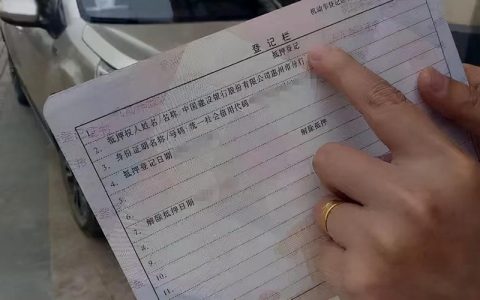 机动车登记
登记栏
抵押登记
1.
2. 抵押权人姓名/名称 中国建设银行股份有限公司惠州市分行
3. 身份证明名称/号码 统一社会信用代码
4. 抵押登记日期
5.
6. 解除抵押
7. 解除抵押日期
8.
9.
10.
11.